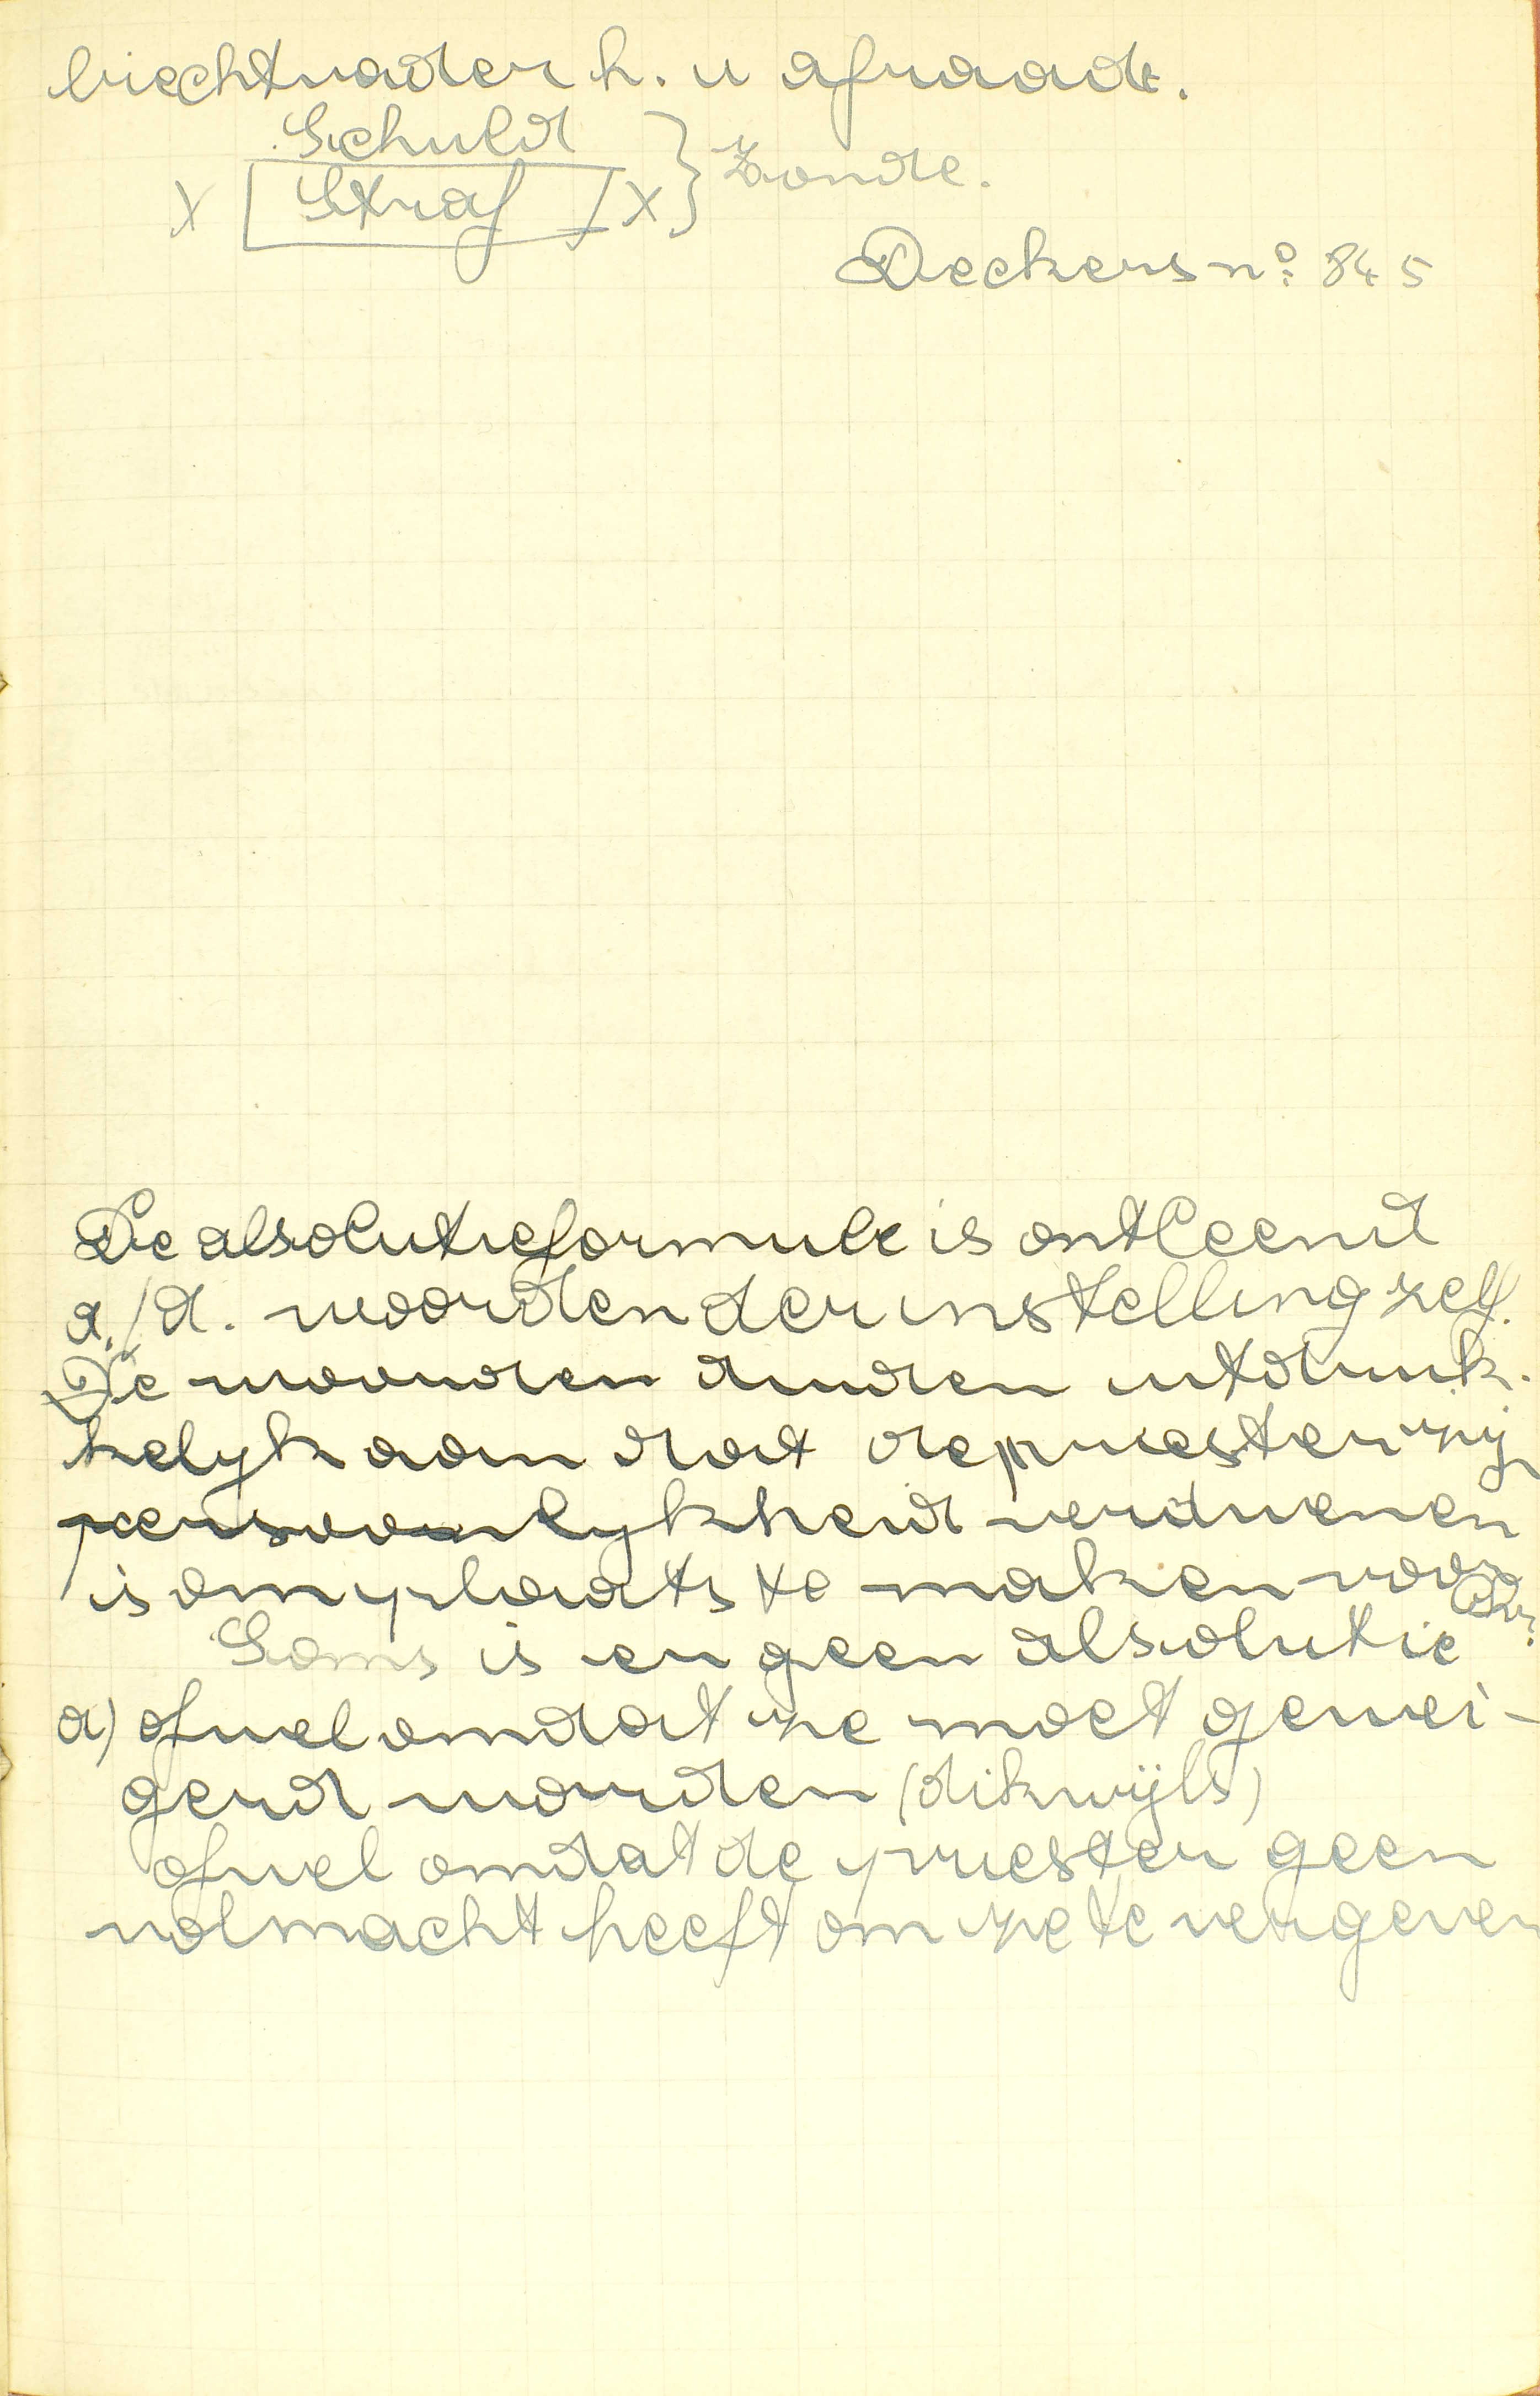 biechtvader h. u afraadt.
Schuld
X [ Straf ] X } Zonde.
Deckers nº 845
De absolutieformule is ontleend
a./d. woorden der instelling zelf.
De woorden duiden uitdruk-
kelyk aan dat de priester zijn
persoonlykheid verdwenen
is om plaats te maken voor
Chr.
Soms is er geen absolutie
a) ofwel omdat ze moet gewei-
gerd worden (dikwijls)
ofwel omdat de priester geen
volmacht heeft om ze te vergeven